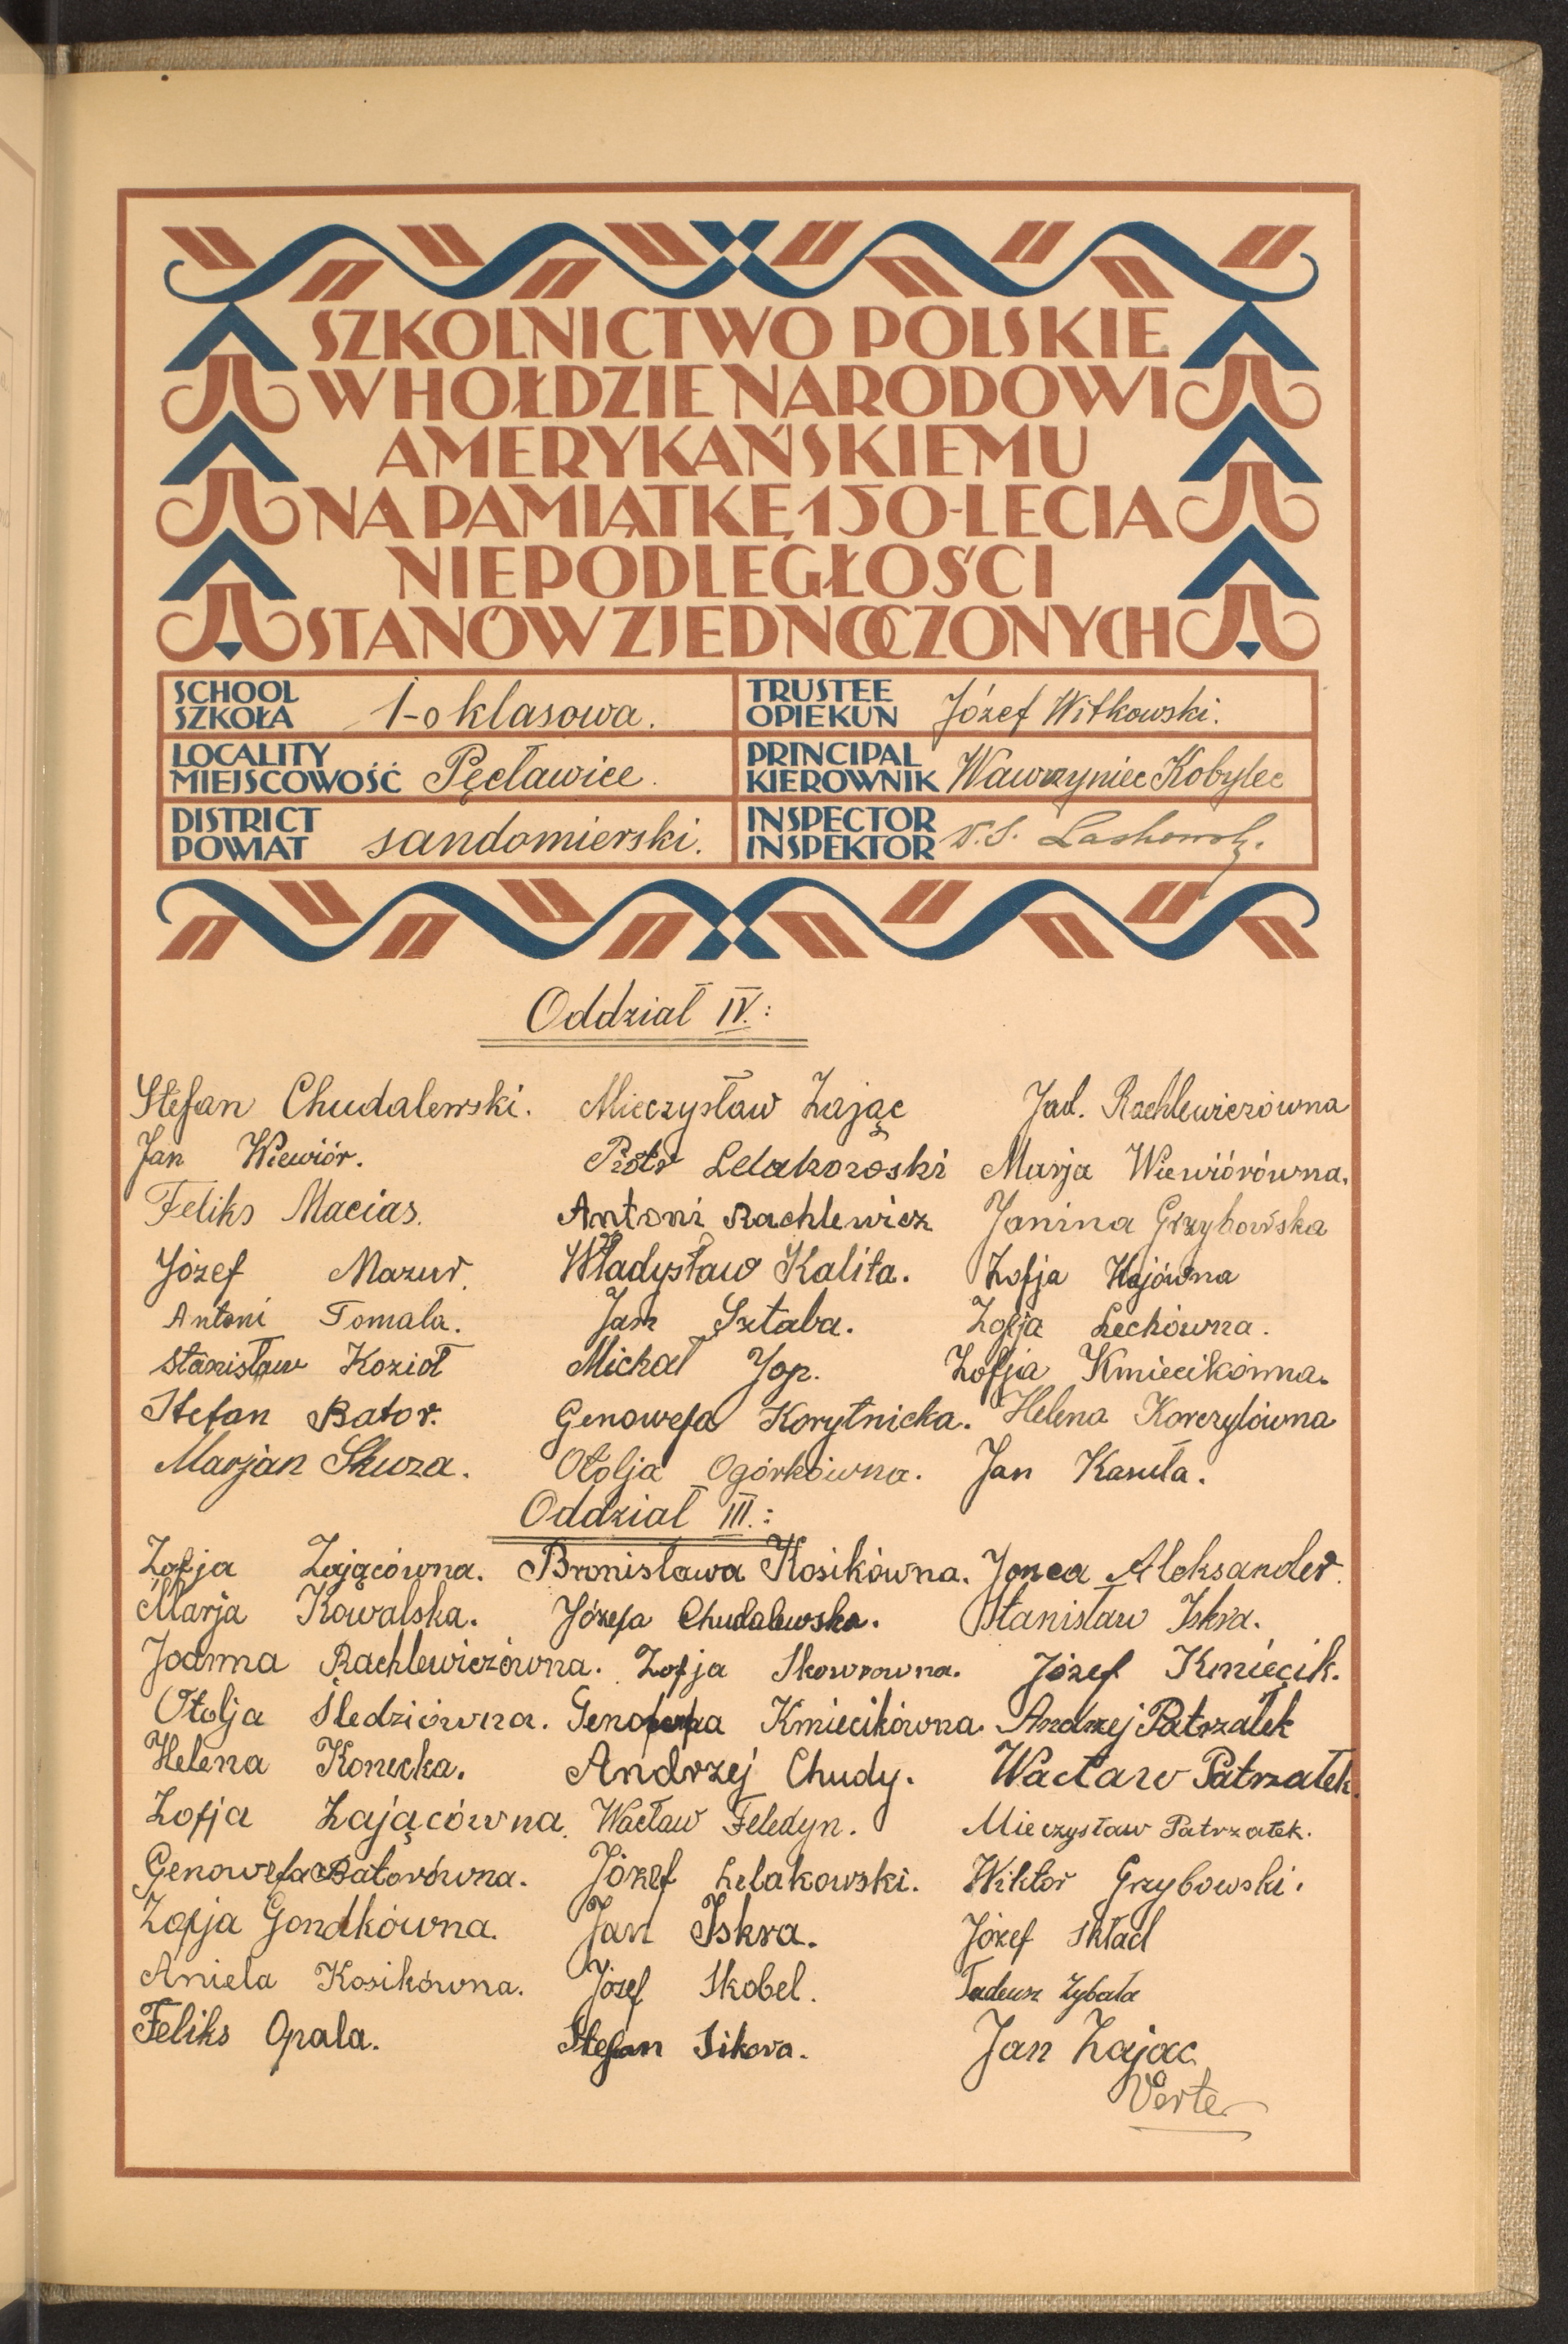 SZKOLNICTWO POLSKIE
W HOŁDZIE NARODOWI
AMERYKAŃSKIEMU
NA PAMIĄTKĘ 150-LECIA
NIEPODLEGŁOŚCI
STANÓW ZJEDNOCZONYCH
SCHOOL
SZKOŁA 1-o klasowa.
TRUSTEE
OPIEKUN Józef Witkowski.
LOCALITY
MIEJSCOWOŚĆ Pęcławice.
PRINCIPAL
KIEROWNIK Wawrzyniec Kobylec
DISTRICT
POWIAT sandomierski.
INSPECTOR
INSPEKTOR
Oddział IV.:
Stefan Chudalewski. Mieczysław Zając Jad. Rachlewiczówna
Jan Wiewiór. Piotr Lelakowski Marja Wiewiórówna.
Feliks Macias. Antoni Rachlewicz Janina Grzybowska
Józef Mazur. Władysław Kalita. Zofja Kajówna
Antoni Tomala. Jan Sztaba. Zofja Lechówna.
Stanisław Kozioł Michał Jop. Zofja Kmiecikówna.
Stefan Bator. Genowefa Korytnicka. Helena Korczylówna
Marjan Skuza. Otolja Ogórkówna. Jan Kasuła.
Oddział III.:
Zofja Zającówna. Bronisława Kosikówna. Jonca Aleksander.
Marja Kowalska. Józefa Chudalewska. Stanisław Iskra.
Joanna Rachlewiczówna. Zofja Skowrowna. Józef Kmiecik.
Otolja Śledziówna. Genowefa Kmiecikówna. Andrzej Patrzałek
Helena Konecka. Andrzej Chudy. Wacław Patrzałek.
Zofja Zającówna. Wacław Feledyn. Mieczysław Patrzałek.
Genowefa Batorówna. Józef Lelakowski. Wiktor Grzybowski.
Zofja Gondkówna. Jan Iskra. Józef Skład
Aniela Kosikówna. Józef Skobel. Tadeusz Zybała
Feliks Opala. Stefan Sikora. Jan Zajac
Verte